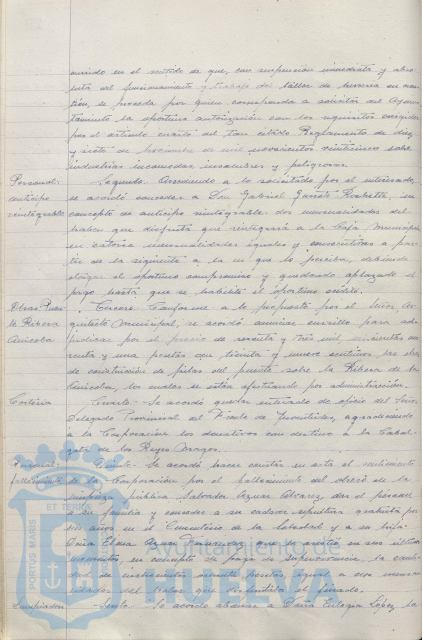 ourrido en el sentido de que, con suspensión inmediata y abso-
luta del funcionamiento y trabajo del taller de herrería en cues-
tión, se proceda por quien corresponda a solicitar del Ayun-
tamiento la oportuna autorización con los requisitos exigidos
por el artículo cuarto del tan citado Reglamento de diez
y siete de Noviembre de mil novecientos veinticinco sobre
industrias incomodas, insalubres y peligrosas.
Personal:
anticipo
reintegrable
Segundo. Accediendo a lo solicitado por el interesado,
se acordó conceder a Don Gabriel Garrido, en
concepto de anticipo reintegrable dos mensualidades del
haber que disfruta que reintegrará a la Caja Municipal
en catorce mensualidades iguales y consecutivas a par-
tir de la siguiente a la en que lo perciba, debiendo
otorgar el oportuno compromiso y quedando aplazado el
pago hasta que se habilite el oportuno crédito.
Obras Puen-
te Ribera
Anicoba
Tercero. Conforme a lo propuesto por el Señor Ar-
quitecto Municipal, se acordó anunciar concursillo para ad-
judicar por el precio de sesenta y tres mil, quinientas
y una pesetas con treinta y nueve centimos las obras
de construcción de pilas del puente sobre la Ribera de la
Anicoba, los cuales se están efectuando por administración.
Cortesía
Cuarto. Se acordó quedar enterado de oficio del Señor
Delegado Provincial del Frente de Juventudes, agradeciendo
a la Corporación los donativos con destino a la Cabal-
gata de los Reyes Magos.
Personal:
fallecimiento
Quinto. Se acordó hacer constar en acta el sentimiento
de la Corporación por el fallecimiento del obrero de la
limpieza pública Salvador Aznar Alvarez, dar el pésame
a su familia y conceder a su cadaver sepultura gratuita por
seis años en el Cementerio de la Soledad y a su hija
Doña Elena Aznar que le asistió en sus últimos
momentos, en concepto de paga de supervivencia, la canti-
dad de pesetas igual a dos mensua-
lidades del haber que disfrutaba el finado.
Sexto. Se acordó abonar a Doña Eulogia López, la
PORTUS MARIS
ET TERRAE
Ayuntamiento de
HUELVA